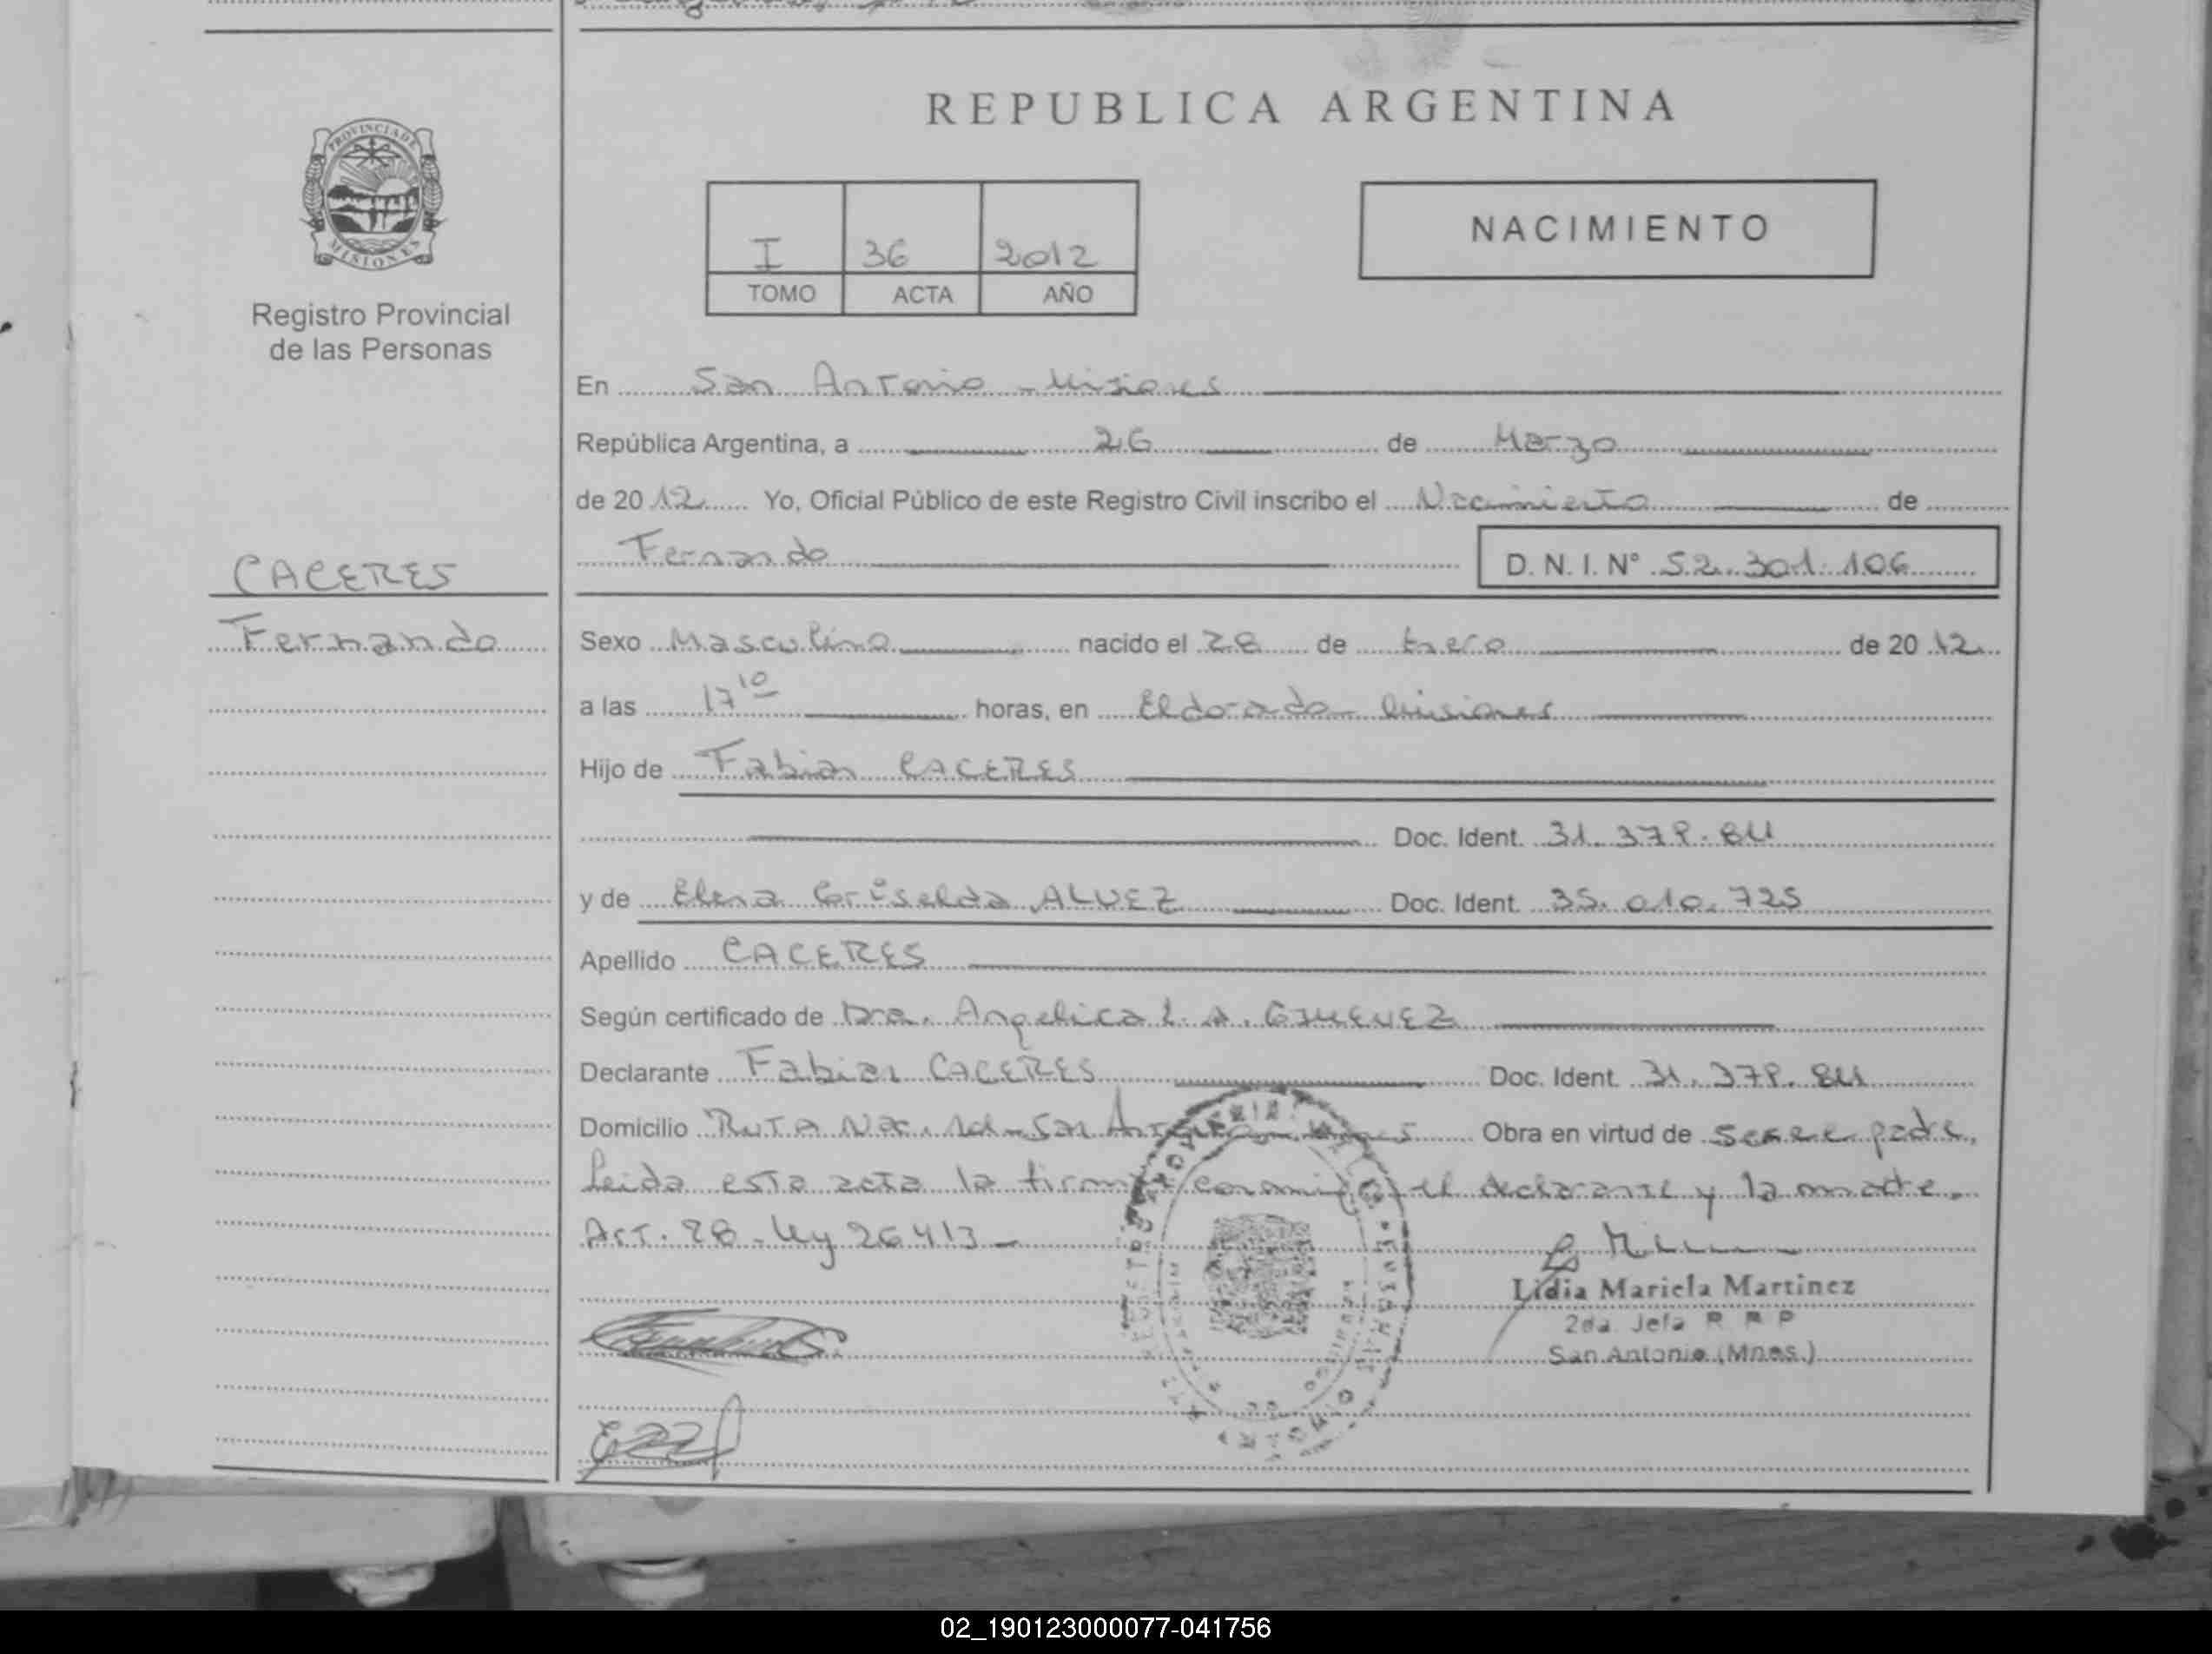 REPUBLICA ARGENTINA
PROVINCIA DE MISIONES
Registro Provincial
de las Personas
I 36 2012
TOMO ACTA AÑO
NACIMIENTO
En San Antonio - Misiones
República Argentina, a 26 de Marzo
de 2012 Yo, Oficial Público de este Registro Civil inscribo el Nacimiento de
Fernando D. N. I. Nº 52.301.106
CACERES
Fernando
Sexo Masculino nacido el 28 de Enero de 2012
a las 17 10 horas, en Eldorado Misiones
Hijo de Fabian CACERES
Doc. Ident. 31.379.811
y de Elena Griselda ALVEZ Doc. Ident. 35.010.725
Apellido CACERES
Según certificado de Dra. Angelica L. A. GIMENEZ
Declarante Fabian CACERES Doc. Ident. 31.379.811
Domicilio RUTA Nac. 101 - San Antonio Misiones Obra en virtud de ser el padre,
Leida esta acta la firman conmigo el declarante y la madre.
Art. 28 - Ley 26413 -
Lidia Mariela Martinez
2da. Jefa R R P
San Antonio (Mnes.)
02_190123000077-041756